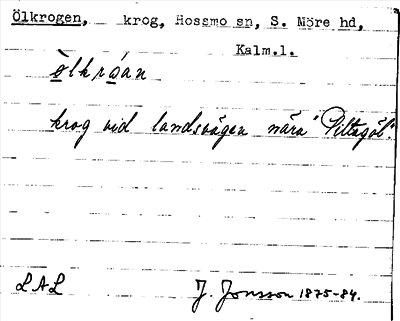 Ölkrogen, krog, Hossmo sn, S. Möre hd,
Kalm.l.
ölkròan
krog vid landsvägen nära "Viltagöl".
LAL J. Jonsson 1875-84.